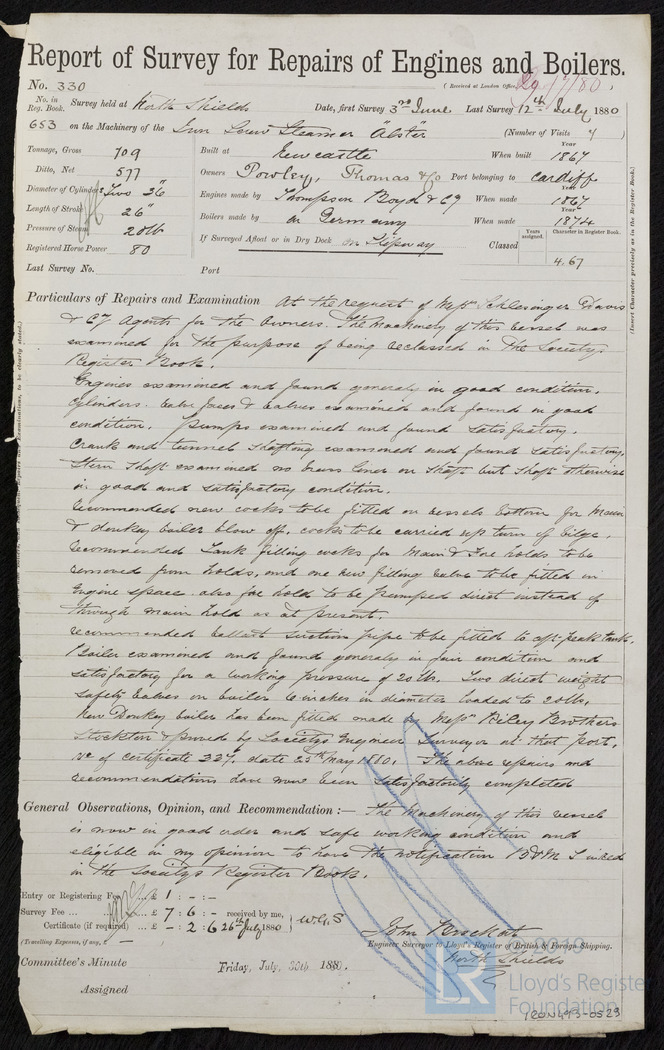 Report of Survey for Repairs of Engines and Boilers.
No. 330
(Received at London Office 29/7/80.)
No. in Reg. Book. 653 Survey held at North Shields Date, first Survey 3rd June Last Survey 12th July 1880
on the Machinery of the Iron Screw Steamer "Alster" (Number of Visits 4)
Tonnage, Gross 709 Built at Newcastle When built Year 1867
Ditto, Net 577 Owners Powley, Thomas & Co Port belonging to Cardiff
Diameter of Cylinders Two 26" Engines made by Thompson Boyd & Co When made Year 1867
Length of Stroke 26" Boilers made by in Germany When made Year 1874
Pressure of Steam 20lb
Registered Horse Power 80 If Surveyed Afloat or in Dry Dock on Slipway Classed Years assigned. Character in Register Book. 4.67
Last Survey No. Port
(Insert Character precisely as in the Register Book.)
Particulars of Repairs and Examination At the request of Messrs Schlesinger Davis
& Co Agents for the Owners. The Machinery of this vessel was
examined for the purpose of being reclassed in the Societys
Register Book.
Engines examined and found generaly in good condition.
Cylinders. valve faces & valves examined and found in good
condition. Pumps examined and found satisfactory.
Crank and tunnel shafting examined and found satisfactory.
Stern Shaft examined no brass liner on shaft but shaft otherwise
in good and satisfactory condition.
Recommended new cocks to be fitted on vessels bottom for Main
& donkey boiler blow off. cocks to be carried up turn of bilge.
Recommended Tank filling cocks for Main & Fore holds to be
removed from holds, and one new filling valve to be fitted in
Engine space. also fore hold to be pumped direct instead of
through main hold as at present.
Recommended ballast suction pipe to be fitted to aft-peak tank.
Boiler examined and found generaly in fair condition and
satisfactory for a working pressure of 20 lbs. Two direct weight
safety valves on boiler 6 inches in diameter loaded to 20lbs.
New Donkey boiler has been fitted made by Messrs Riley Brothers
Stockton & proved by Societys Engineer Surveyor at that port.
No of certificate 227. date 25th May 1880. The above repairs and
recommendations have now been satisfactorily completed
General Observations, Opinion, and Recommendation:— The Machinery of this vessel
is now in good order and safe working condition and
eligible in my opinion to have the notification B&M S inked
in the Societys Register Book.
Entry or Registering Fee £ 1 : - : -
Survey Fee ... £ 7 : 6 : - received by me,
Certificate (if required) ... £ - : 2 : 6 26th July 1880 W.G.S
(Travelling Expenses, if any, £ —
John
Engineer Surveyor to Lloyd's Register of British & Foreign Shipping.
North Shields
Committee's Minute Friday, July, 30th 1880.
Assigned
LR
Lloyd's Register
Foundation
IRON493-0523